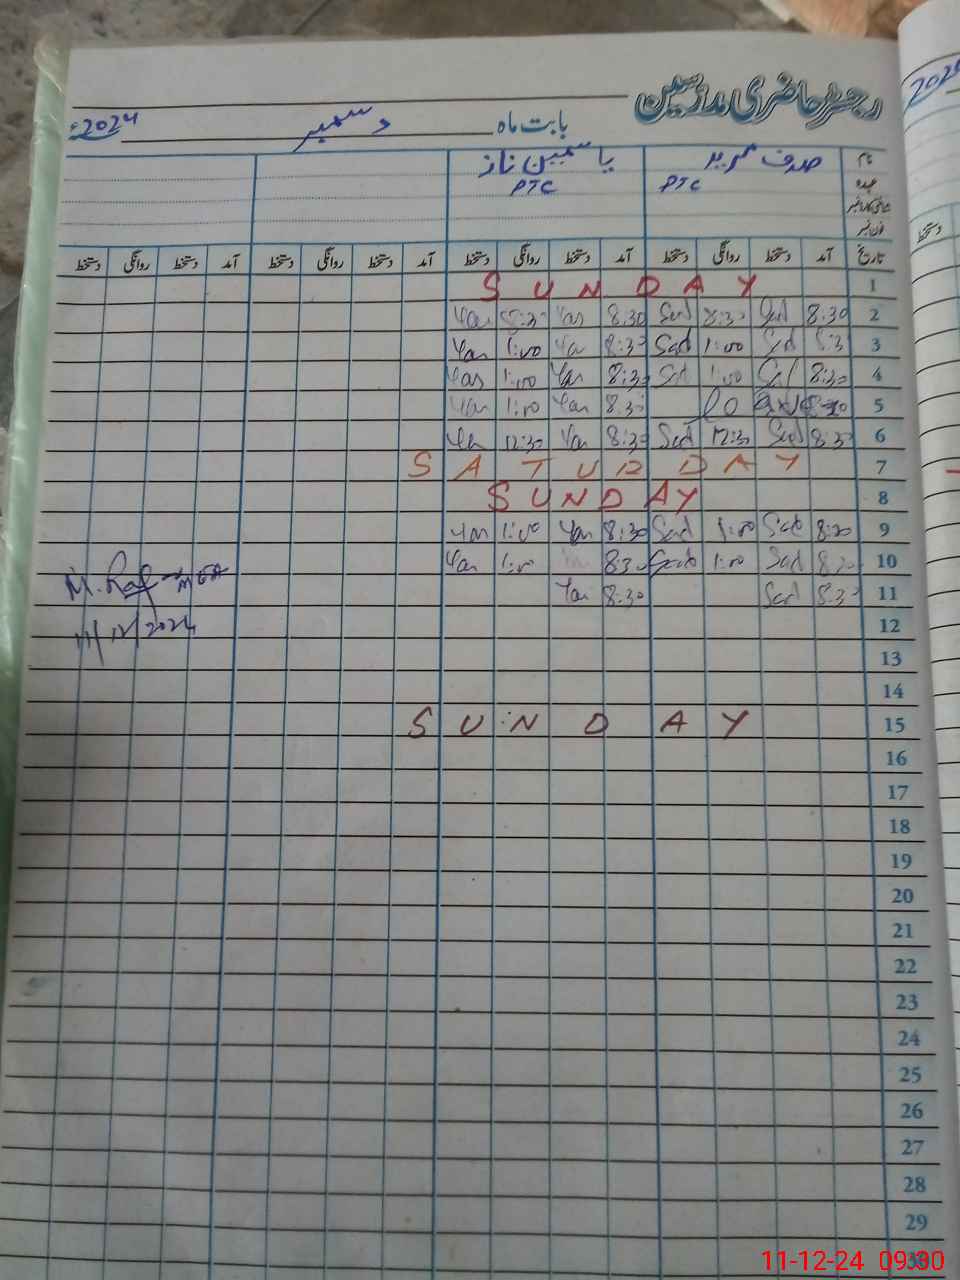 رجسٹر حاضری ملازمین
بابت ماہ دسمبر 2024ء
نام صدف یاسمین ناز
عہدہ PTC PTC
فون نمبر
تاریخ آمد دستخط روانگی دستخط آمد دستخط روانگی دستخط آمد دستخط روانگی دستخط آمد دستخط روانگی دستخط
1 SUNDAY
2 8:30 Sad 8:30 Sad 8:30 Yas 8:30 Yas
3 8:3 Sad 1:00 Sad 8:30 Ya 1:00 Yas
4 8:30 Sad 1:00 Sad 8:30 Yas 1:00 Yas
5 8:30 Yas 1:00 Yas
6 8:30 Sad 12:30 Sad 8:30 Yas 12:30 Ya
7 SATURDAY
8 SUNDAY
9 8:30 Sad 1:00 Sad 8:30 Yas 1:00 Yas
10 8:30 Sad 1:00 8:30 1:00 Yas
11 8:30 Sad 8:30 Yas
M. Raf MEA
11/12/2024
12
13
14
15 SUNDAY
16
17
18
19
20
21
22
23
24
25
26
27
28
29
30
2024
دستخط
11-12-24 09:30